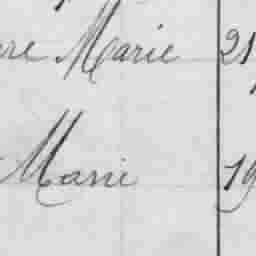 Marie 21
Marie 19